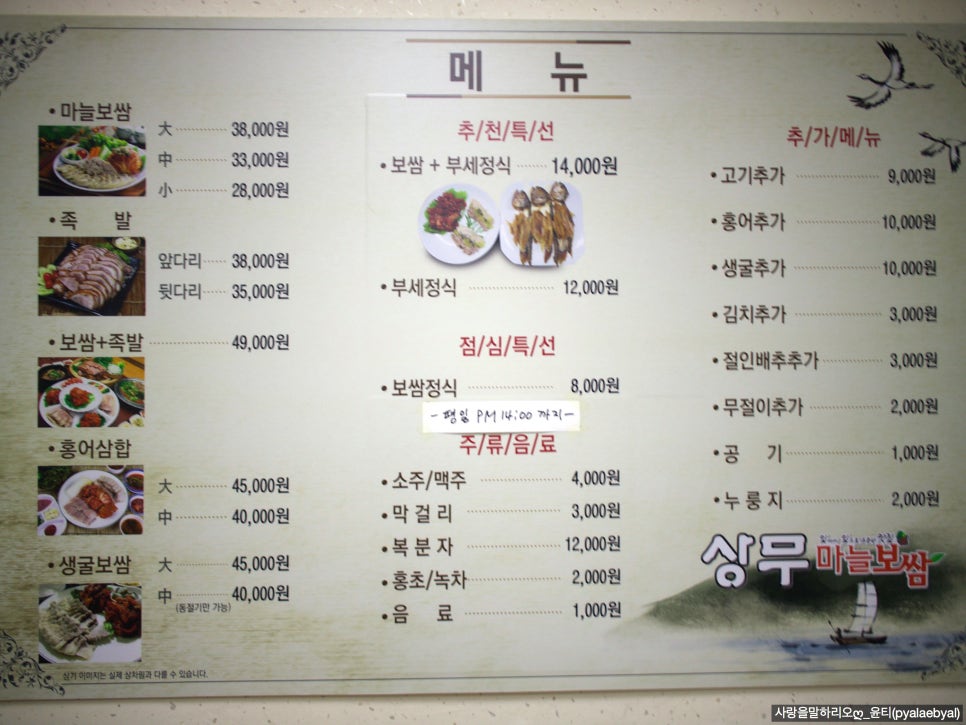 메 뉴
• 마늘보쌈
大 ············ 38,000원
中 ············ 33,000원
小 ············ 28,000원
• 족 발
앞다리 ····· 38,000원
뒷다리 ····· 35,000원
• 보쌈+족발 ···················· 49,000원
• 홍어삼합
大 ············ 45,000원
中 ············ 40,000원
• 생굴보쌈
大 ············ 45,000원
中 ············ 40,000원
(동절기만 가능)
상기 이미지는 실제 상차림과 다를 수 있습니다.
추/천/특/선
• 보쌈 + 부세정식 ······· 14,000원
• 부세정식 ···················· 12,000원
점/심/특/선
• 보쌈정식 ···················· 8,000원
- 평일 PM 14:00 까지 -
주/류/음/료
• 소주/맥주 ···················· 4,000원
• 막 걸 리 ···················· 3,000원
• 복 분 자 ···················· 12,000원
• 홍초/녹차 ···················· 2,000원
• 음 료 ···················· 1,000원
추/가/메/뉴
• 고기추가 ···················· 9,000원
• 홍어추가 ···················· 10,000원
• 생굴추가 ···················· 10,000원
• 김치추가 ···················· 3,000원
• 절인배추추가 ············· 3,000원
• 무절이추가 ················ 2,000원
• 공 기 ···················· 1,000원
• 누 룽 지 ···················· 2,000원
맛집
상무 마늘보쌈
사랑을말하리오ღ_윤티(pyalaebyal)